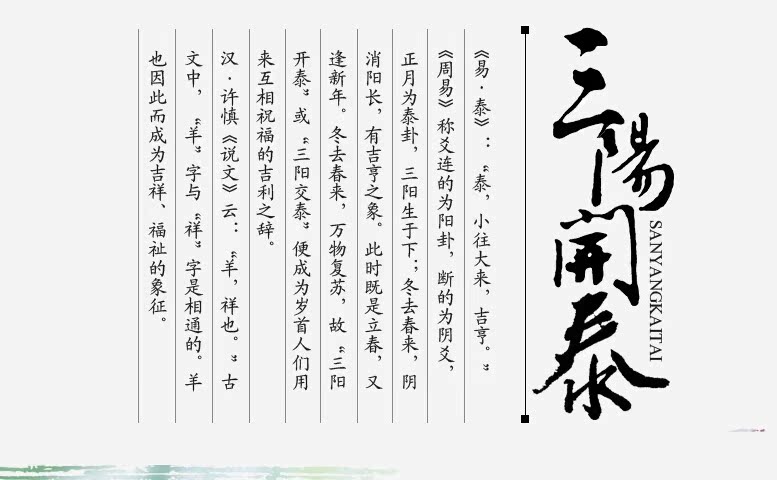 三陽開泰
SANYANGKAITAI
《易·泰》：“泰，小往大来，吉亨。”
《周易》称爻连的为阳卦，断的为阴爻，
正月为泰卦，三阳生于下；冬去春来，阴
消阳长，有吉亨之象。此时既是立春，又
逢新年。冬去春来，万物复苏，故“三阳
开泰”或“三阳交泰”便成为岁首人们用
来互相祝福的吉利之辞。
汉·许慎《说文》云：“羊，祥也。”古
文中，“羊”字与“祥”字是相通的。羊
也因此而成为吉祥、福祉的象征。